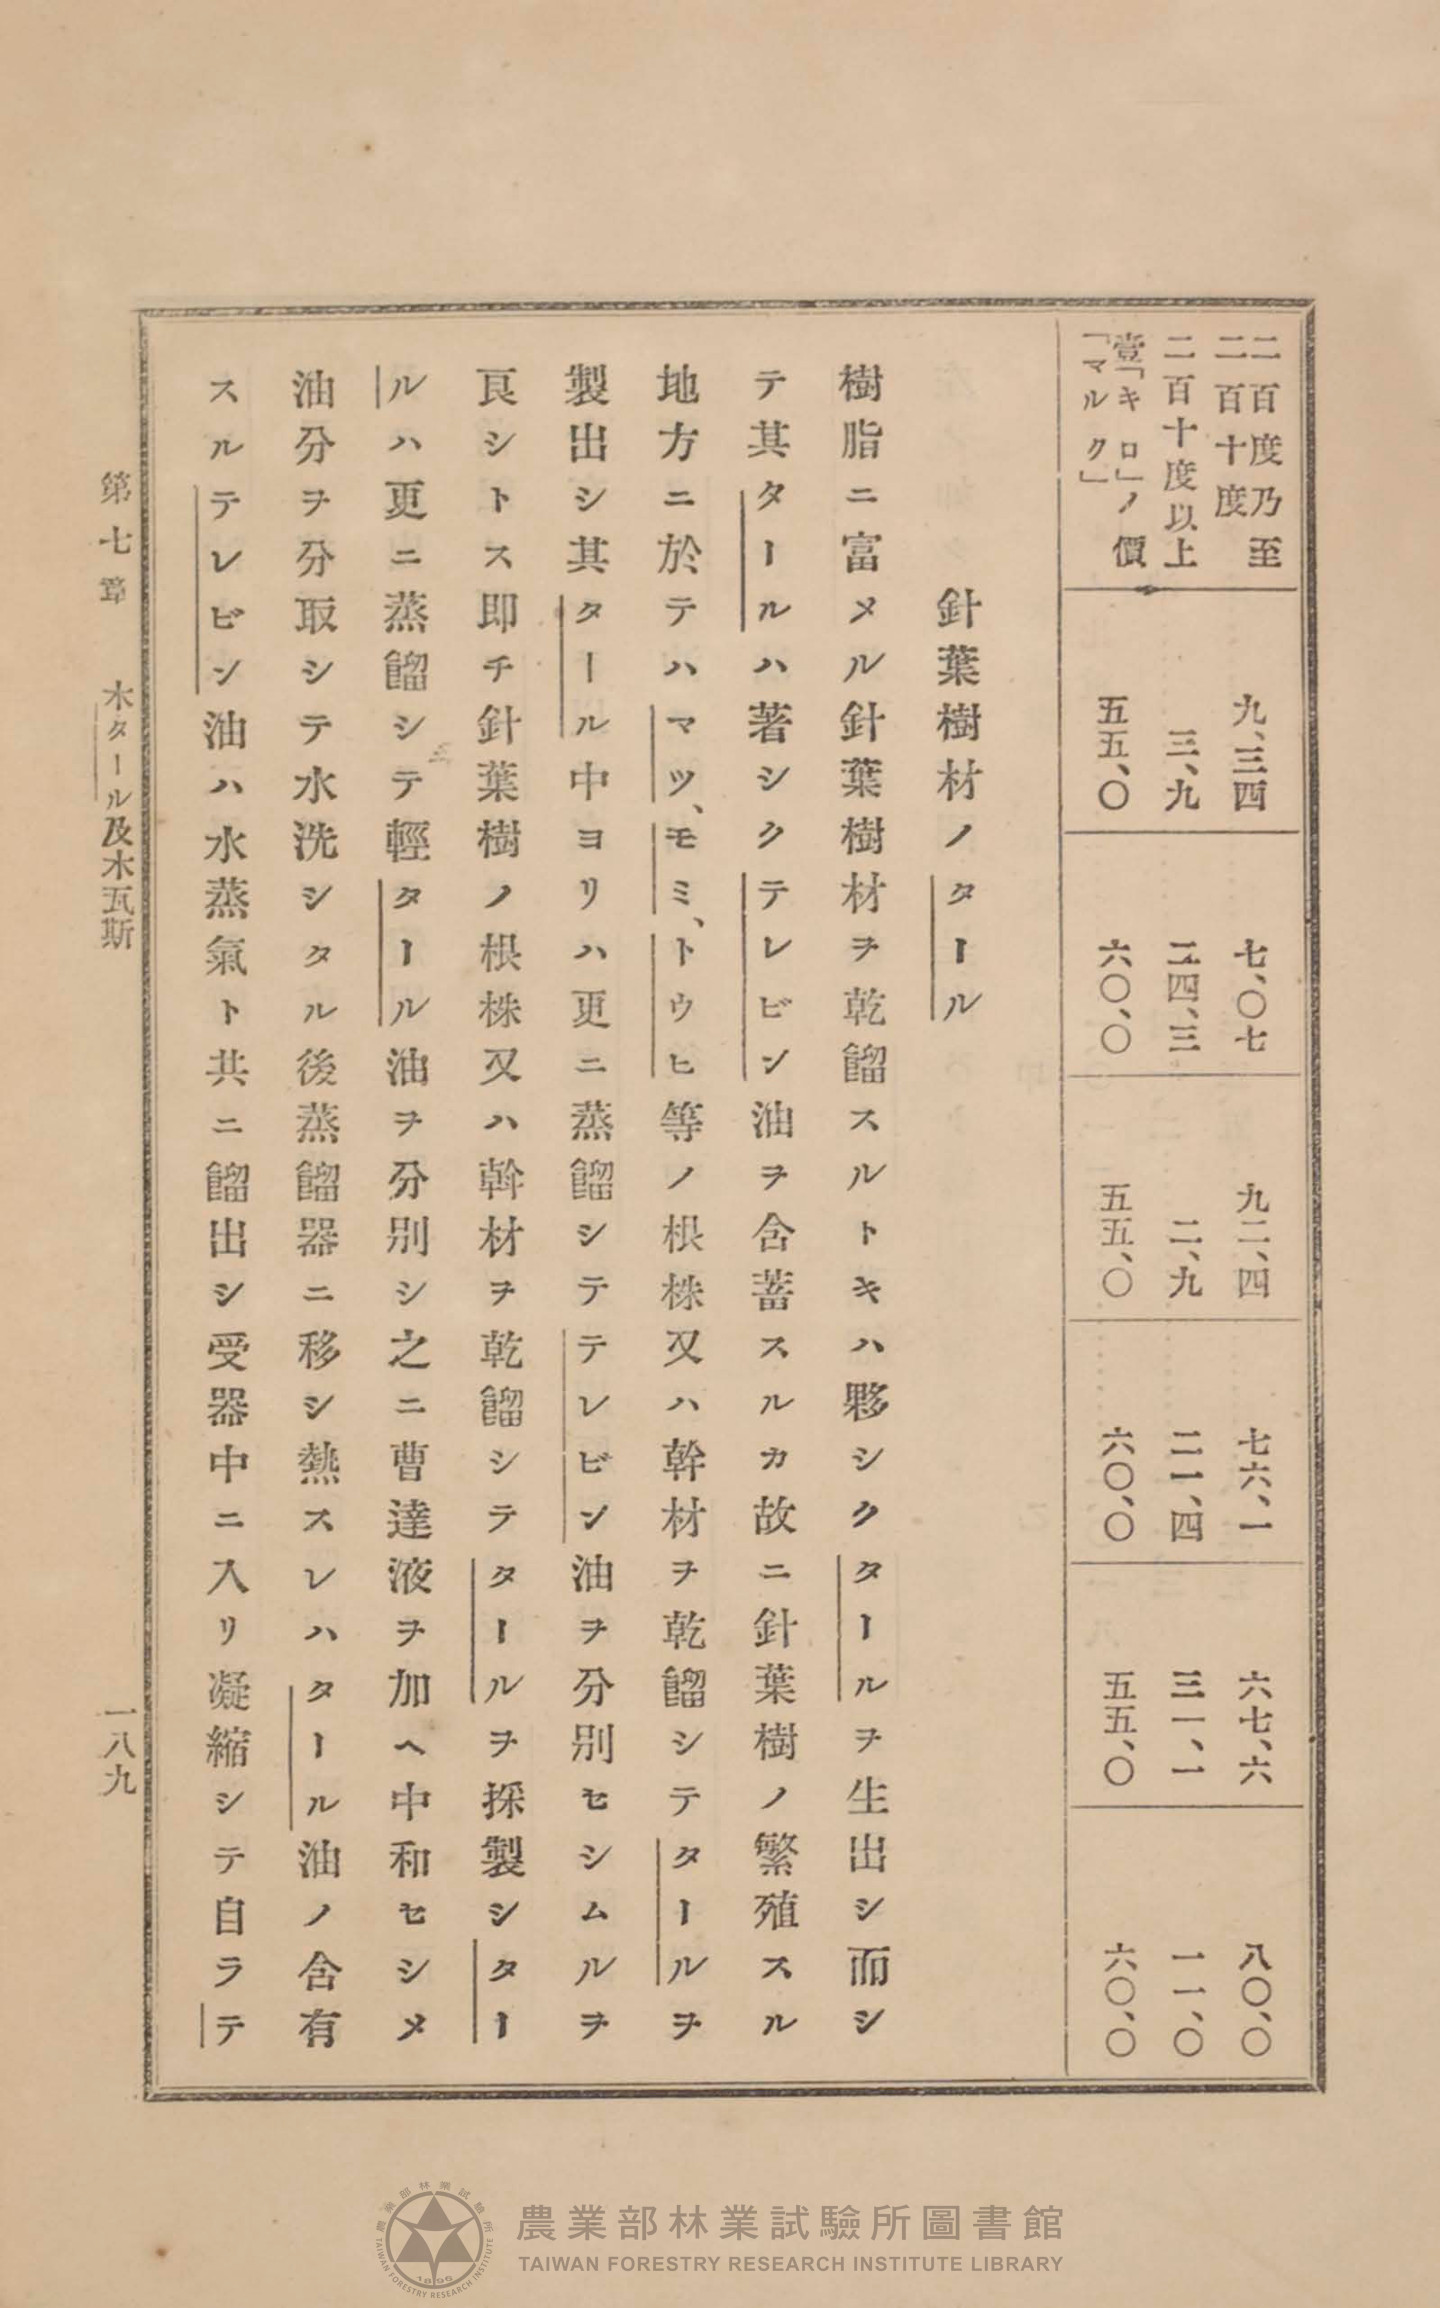 二百度乃至
二百十度
九、三四
七、〇七
九二、四
七六、一
六七、六
八〇、〇
二百十度以上
三、九
二四、三
二、九
二一、四
三一、一
一一、〇
壹「キロ」ノ價
「マルク」
五五、〇
六〇、〇
五五、〇
六〇、〇
五五、〇
六〇、〇
針葉樹材ノタール
樹脂ニ富メル針葉樹材ヲ乾餾スルトキハ夥シクタールヲ生出シ而シ
テ其タールハ著シクテレビン油ヲ含蓄スルカ故ニ針葉樹ノ繁殖スル
地方ニ於テハマツ、モミ、トウヒ等ノ根株又ハ幹材ヲ乾餾シテタールヲ
製出シ其タール中ヨリハ更ニ蒸餾シテテレビン油ヲ分別セシムルヲ
良シトス即チ針葉樹ノ根株又ハ幹材ヲ乾餾シテタールヲ採製シター
ルハ更ニ蒸餾シテ輕タール油ヲ分別シ之ニ曹達液ヲ加ヘ中和セシメ
油分ヲ分取シテ水洗シタル後蒸餾器ニ移シ熱スレハタール油ノ含有
スルテレビン油ハ水蒸氣ト共ニ餾出シ受器中ニ入リ凝縮シテ自ラテ
第七章 木タール及木瓦斯 一八九
農業部林業試驗所圖書館
TAIWAN FORESTRY RESEARCH INSTITUTE LIBRARY
農業部林業試驗所
TAIWAN FORESTRY RESEARCH INSTITUTE
1896